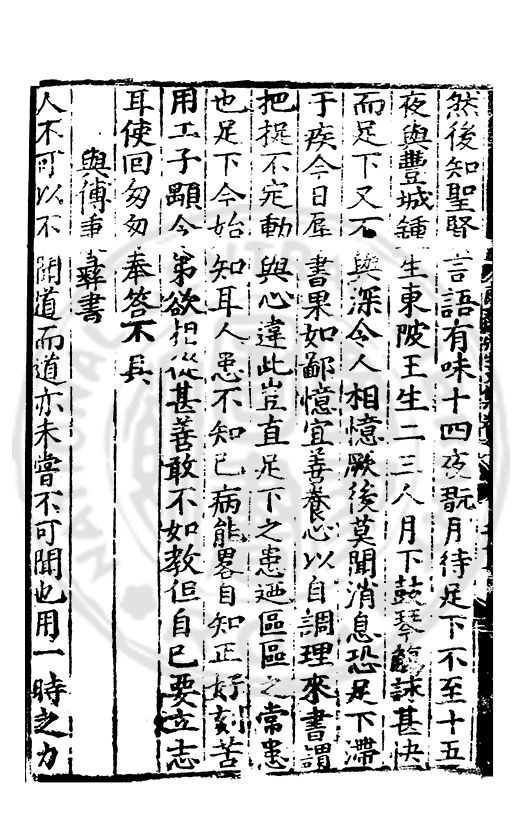 然後知聖賢言語有味十四夜翫月待足下不至十五
夜與豐城鍾生東陂王生二三人月下鼓琴觴詠甚快
而足下又不與深令人相憶厥後莫聞消息恐足下滯
于疾今日辱書果如鄙憶宜善養心以自調理來書謂
把捉不定動與心違此豈直足下之患廼區區之常患
也足下今始知耳人患不知已病能畧自知正好刻苦
用工子顯今弟欲相從甚善敢不如教但自已要立志
耳使回匆匆奉答不具
與傅秉彝書
人不可以不聞道而道亦未嘗不可聞也用一時之力